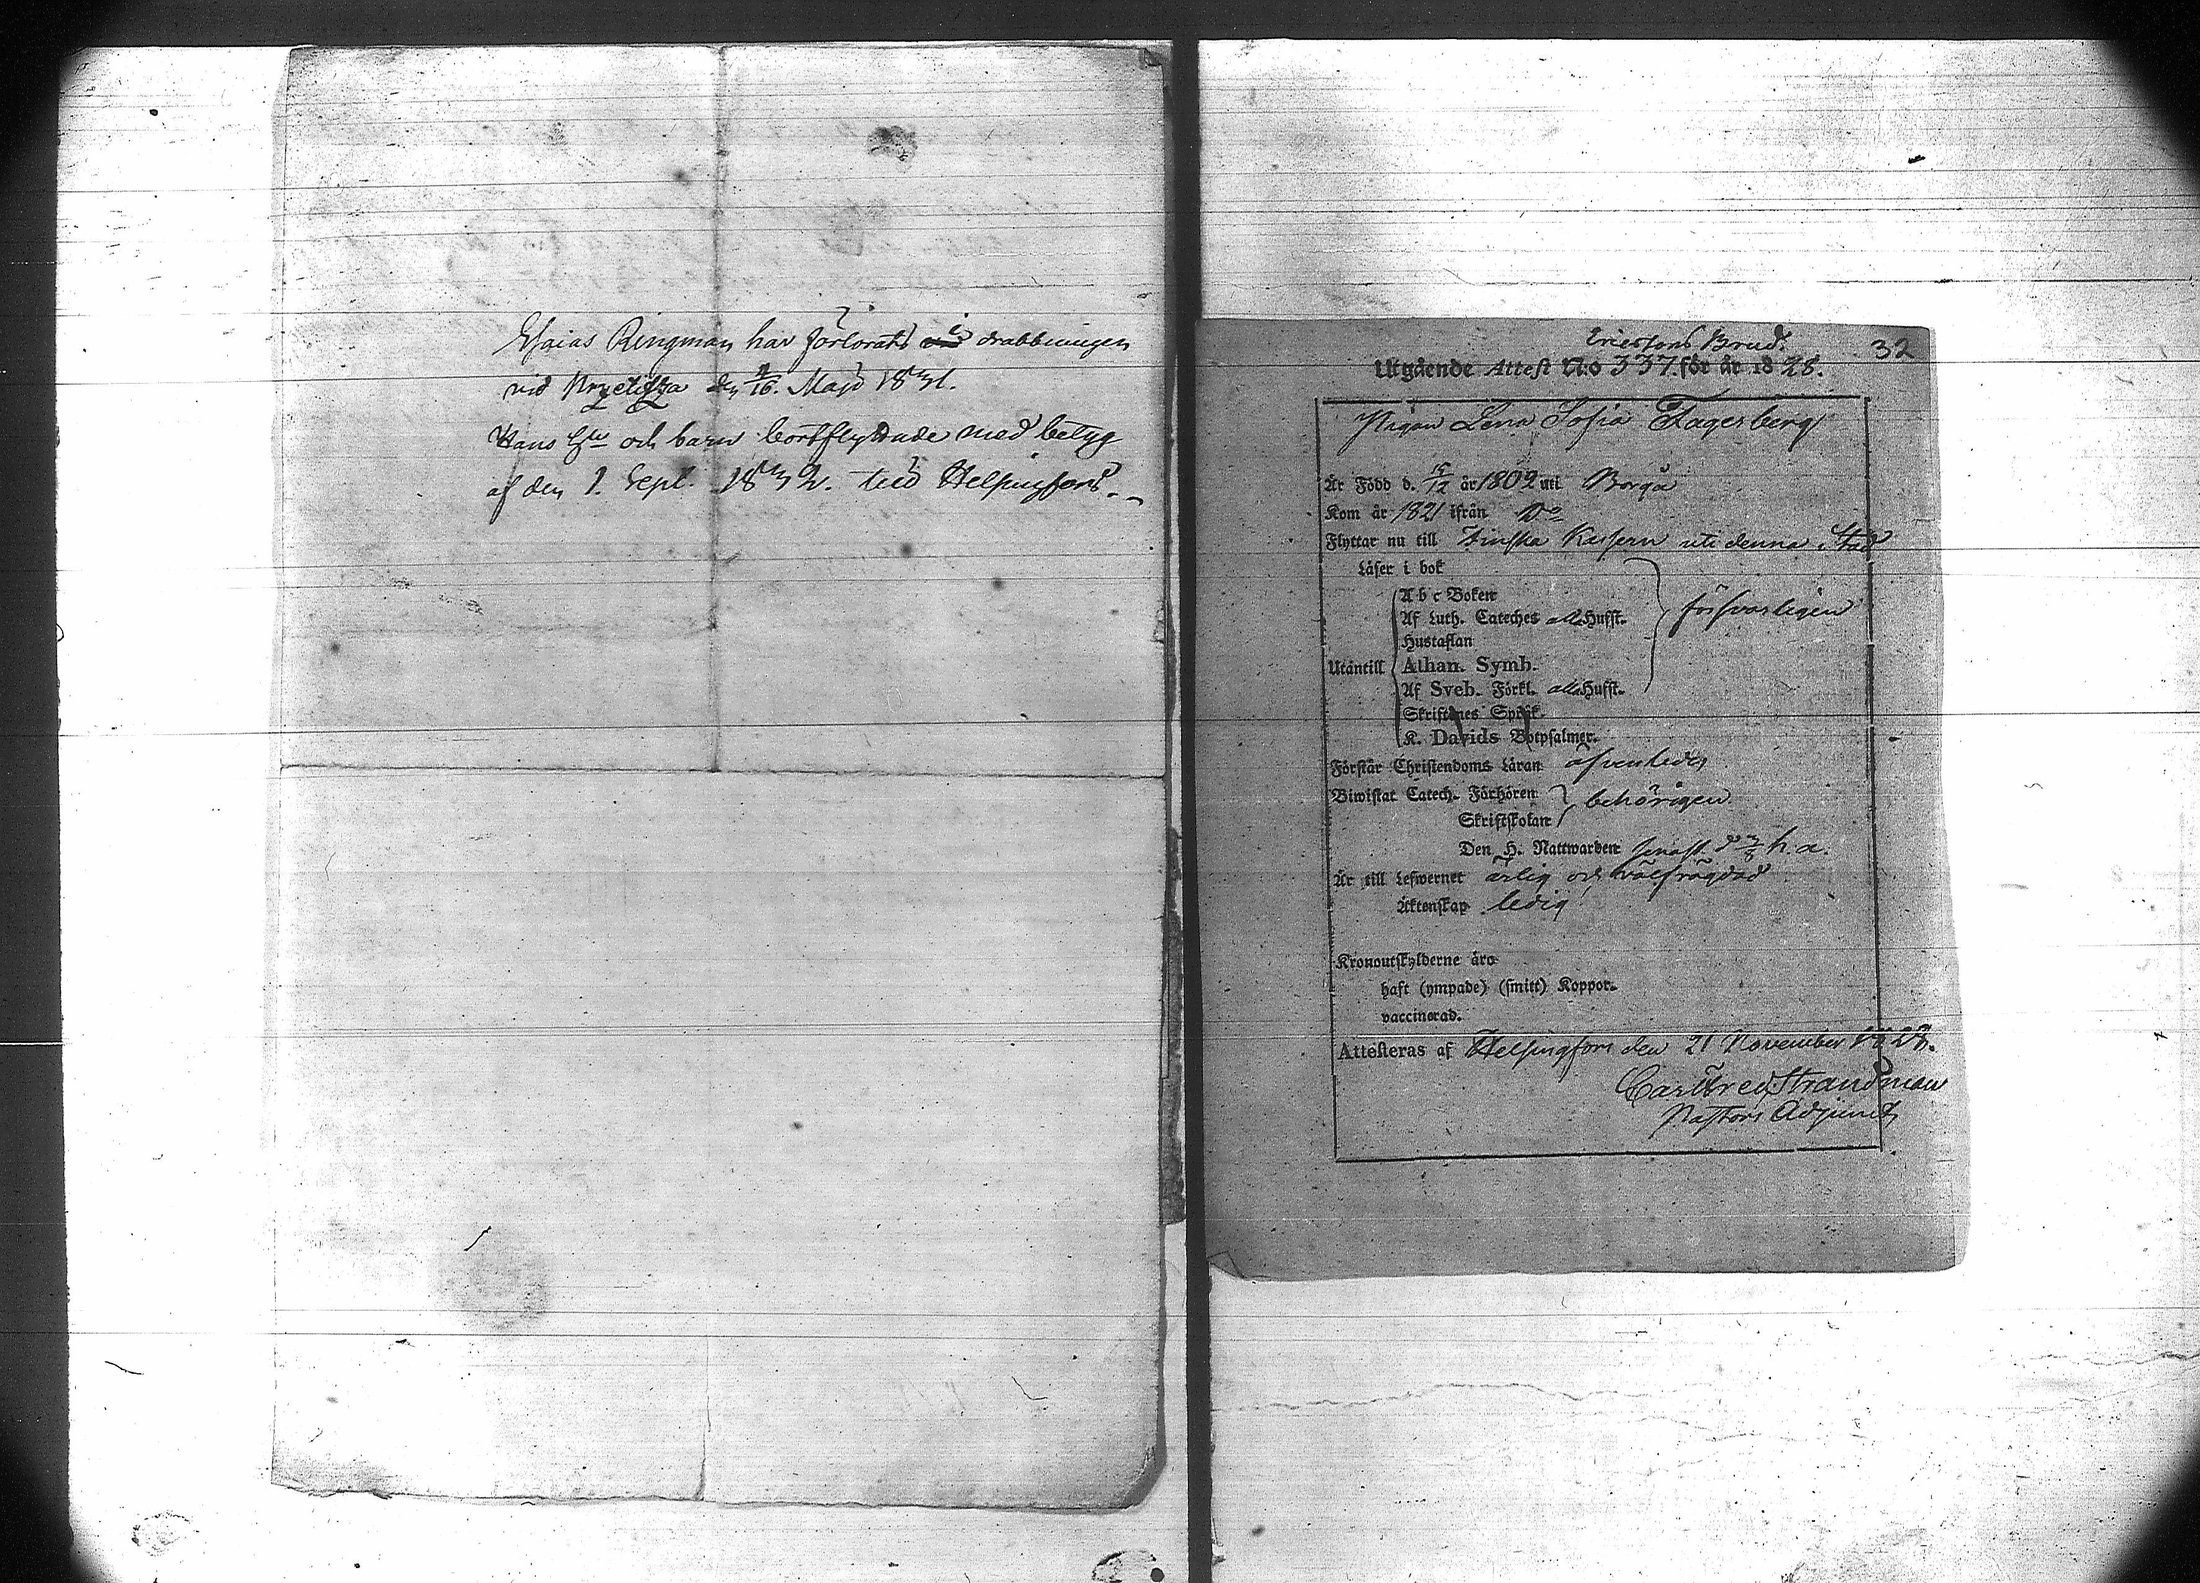 Esaias Ringman har förlorats i drabbningen
vid den 4/16. Maji 1831.
Hans och barn bortflyttade med betyg
af den 1. Sept. 1832. till Helsingfors.
Ericssons Brud.
32
Utgående Attest N:o 337 för år 1828.
Pigan Lena Sofia Fagerberg
Är Född d. 15/12 år 1809 uti Borgå
Kom år 1821 ifrån Do
Flyttar nu till Finska Kasern uti denna Stad
Läser i bok
A b c Boken
Af Luth. Cateches alla Hufst.
försvarligen
Hustaflan
Utantill Athan. Symb.
Af Sveb. Förkl. alla Hufst.
Skriftenes Språk.
K. Davids Botpsalmer.
Förstår Christendoms Läran
Biwistat Catech. Förhören behörigen
Skriftskolan
Den H. Nattwarden senast h. a.
Är till Lefwernet ärlig och välfrägdad
Äktenskap ledig
Kronoutskylderne äro
haft (ympade) (smitt) Koppor.
vaccinerad.
Attesteras af Helsingfors den 21 November 1828.
Carl Fred. Strandman
Pastors Adjunct